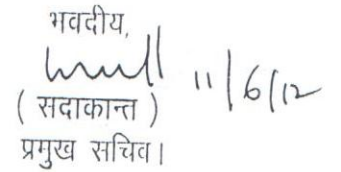 भवदीय,
11/6/12
( सदाकान्त )
प्रमुख सचिव।